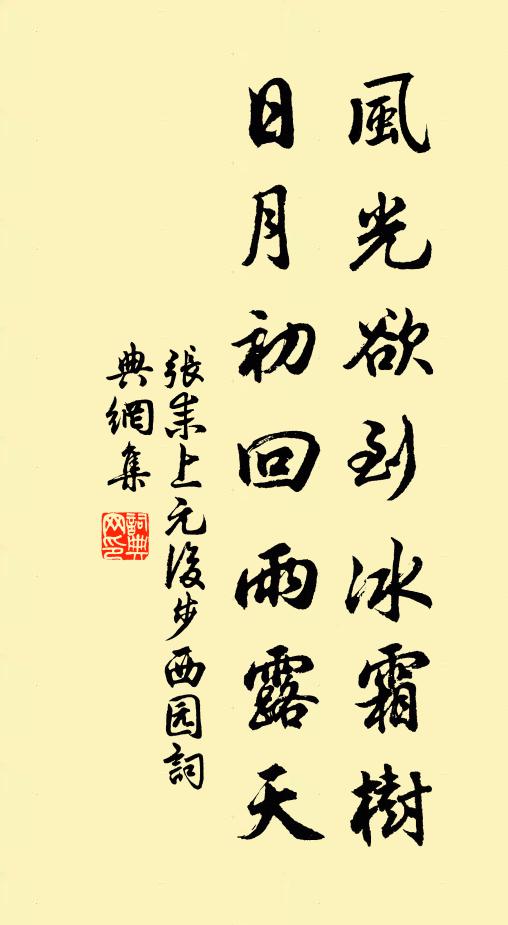 風光欲到冰霜樹
日月初回雨露天
張耒上元後步西园詞
典網集
詞典
网印